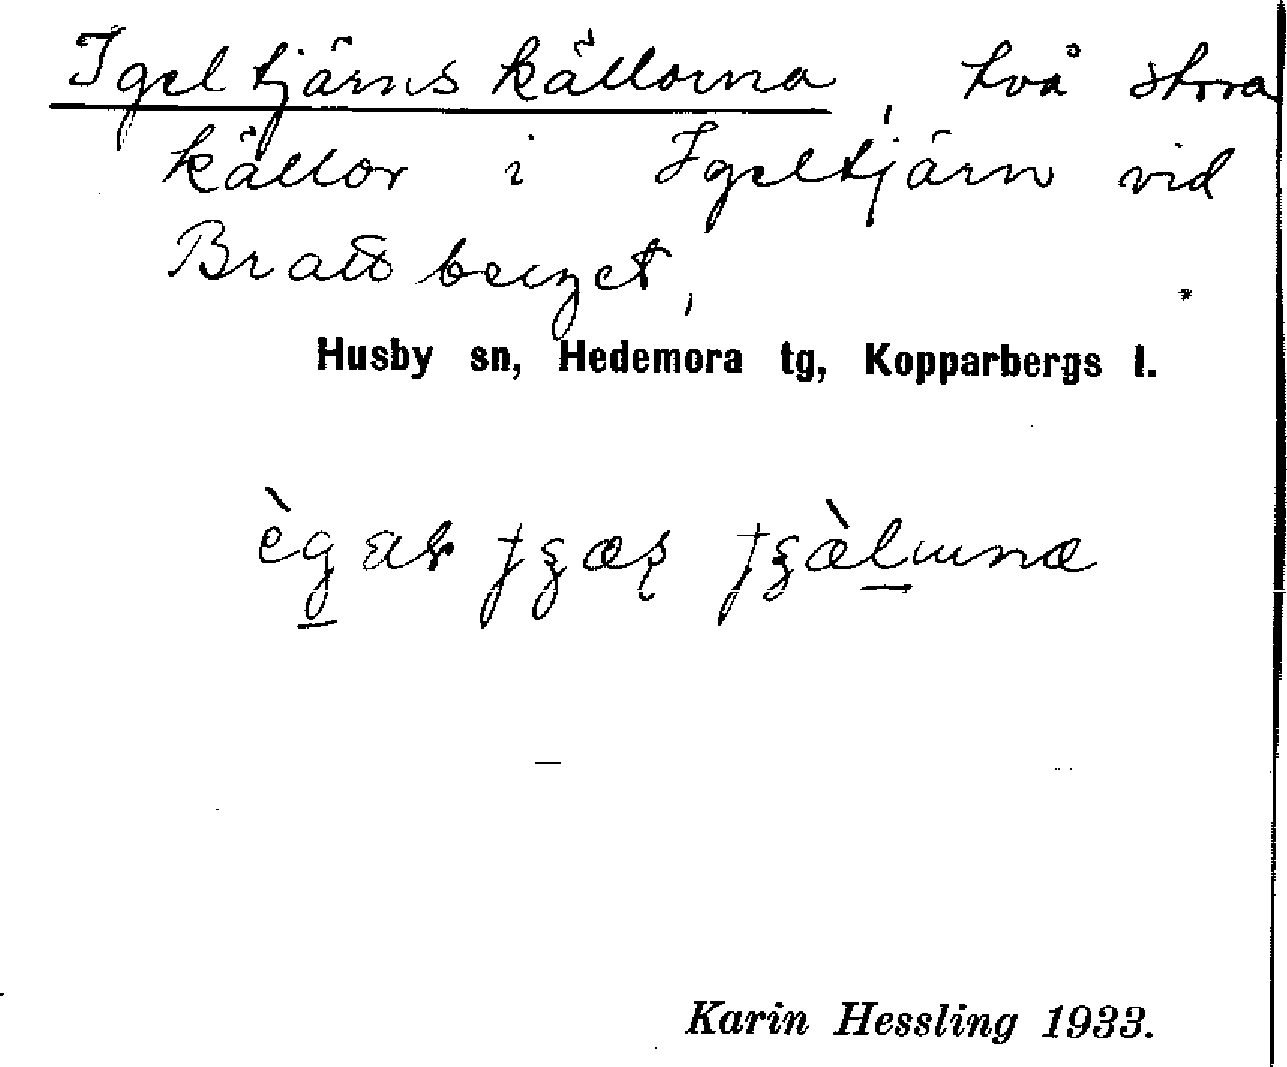 Igeltjärnskällorna, två stora
källor i Igeltjärn vid
Brattberget,
Husby sn, Hedemora tg, Kopparbergs l.
Karin Hessling 1933.